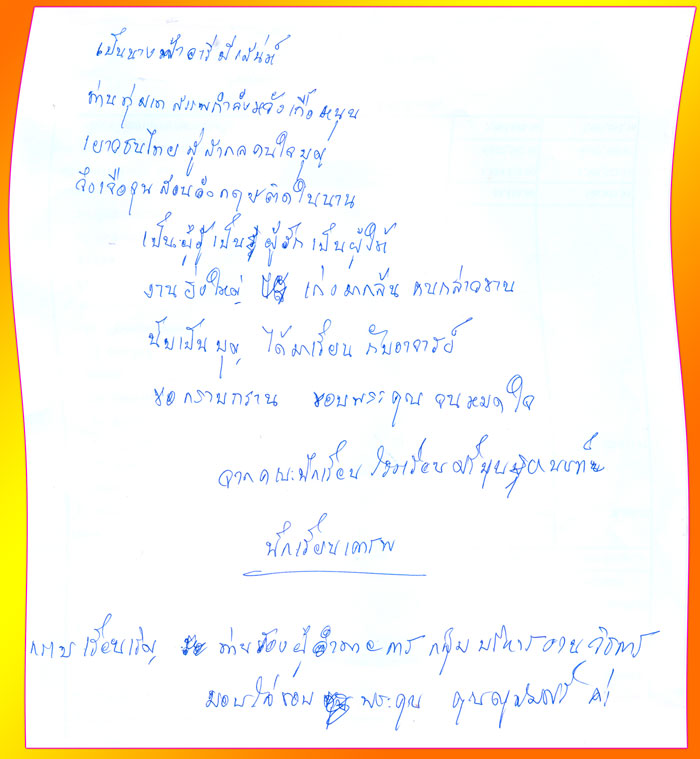 เป็นนางฟ้าอารีมีเสน่ห์
ท่านทุ่มเท สรรพกำลังหวังเกื้อหนุน
เยาวชนไทย สู่สากลคนใจบุญ
จึงเจือจุน สอนอังกฤษติดในนาน
เป็นผู้รู้ เป็นผู้รัก เป็นผู้ให้
งานยิ่งใหญ่ เก่งมากล้น คนกล่าวขาน
นับเป็นบุญ ได้มาเรียน กับอาจารย์
ขอกราบกราน ขอบพระคุณ จนหมดใจ
จากคณะนักเรียน โรงเรียนศรีบุณยานนท์
นักเรียนเคารพ
กราบเรียนเชิญ ท่านรองผู้อำนวยการ กลุ่มบริหารงานวิชาการ
มอบใจขอบพระคุณ ค่ะ